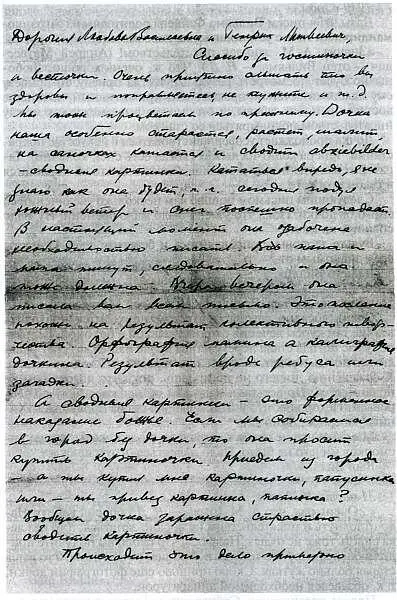 Дорогие Любовь Васильевна и Генрих Матвеевич,
Спасибо за гостиночки
и весточки. Очень приятно слышать что вы
здоровы и поправляетесь, не кужите и т.д.
Мы тоже процветаем по прежнему. Дочка
наша особенно старается, растет, шалит,
на саночках катается и сводит abziebilder
- сводная картинки. Кататься впредь, я не
знаю как она будет, т.к. сегодня подул
южный ветер и снег поспешно пропадает.
В настоящий момент она озабочена
необходимостью писать. Вот папа и
мама пишут, следовательно и она
тоже должна. Вчера вечером она
писала вам всем письмо. Это послание
похоже на результат колективного твор-
чества. Орфография папина а калиграфия
дочкина. Результат вроде ребуса или
загадки.
А сводная картинки - это форменное
наказание божье. Если мы собираемся
в город без дочки, то она просит
купить картиночки. Приедем из города
- а ты купил мне картиночки, папусинька
или - ты привез картинка, папочка?
Вообщем дочка заражена страстью
сводить картиночки.
Происходит это дело примерно